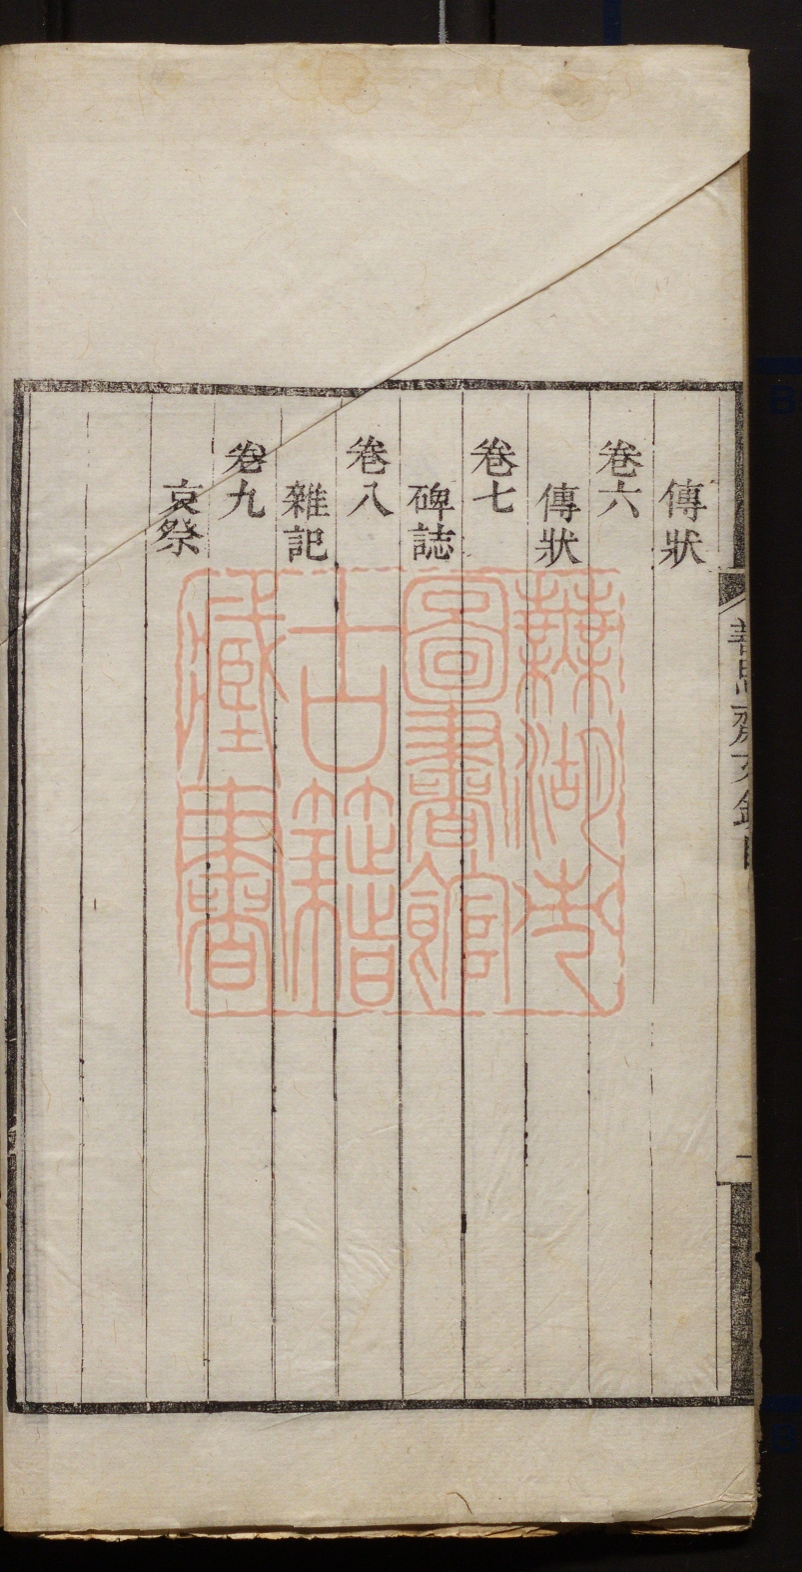 傳狀
卷六
傳狀
卷七
碑誌
卷八
雜記
卷九
哀祭
蕪湖市
圖書館
古籍
藏書